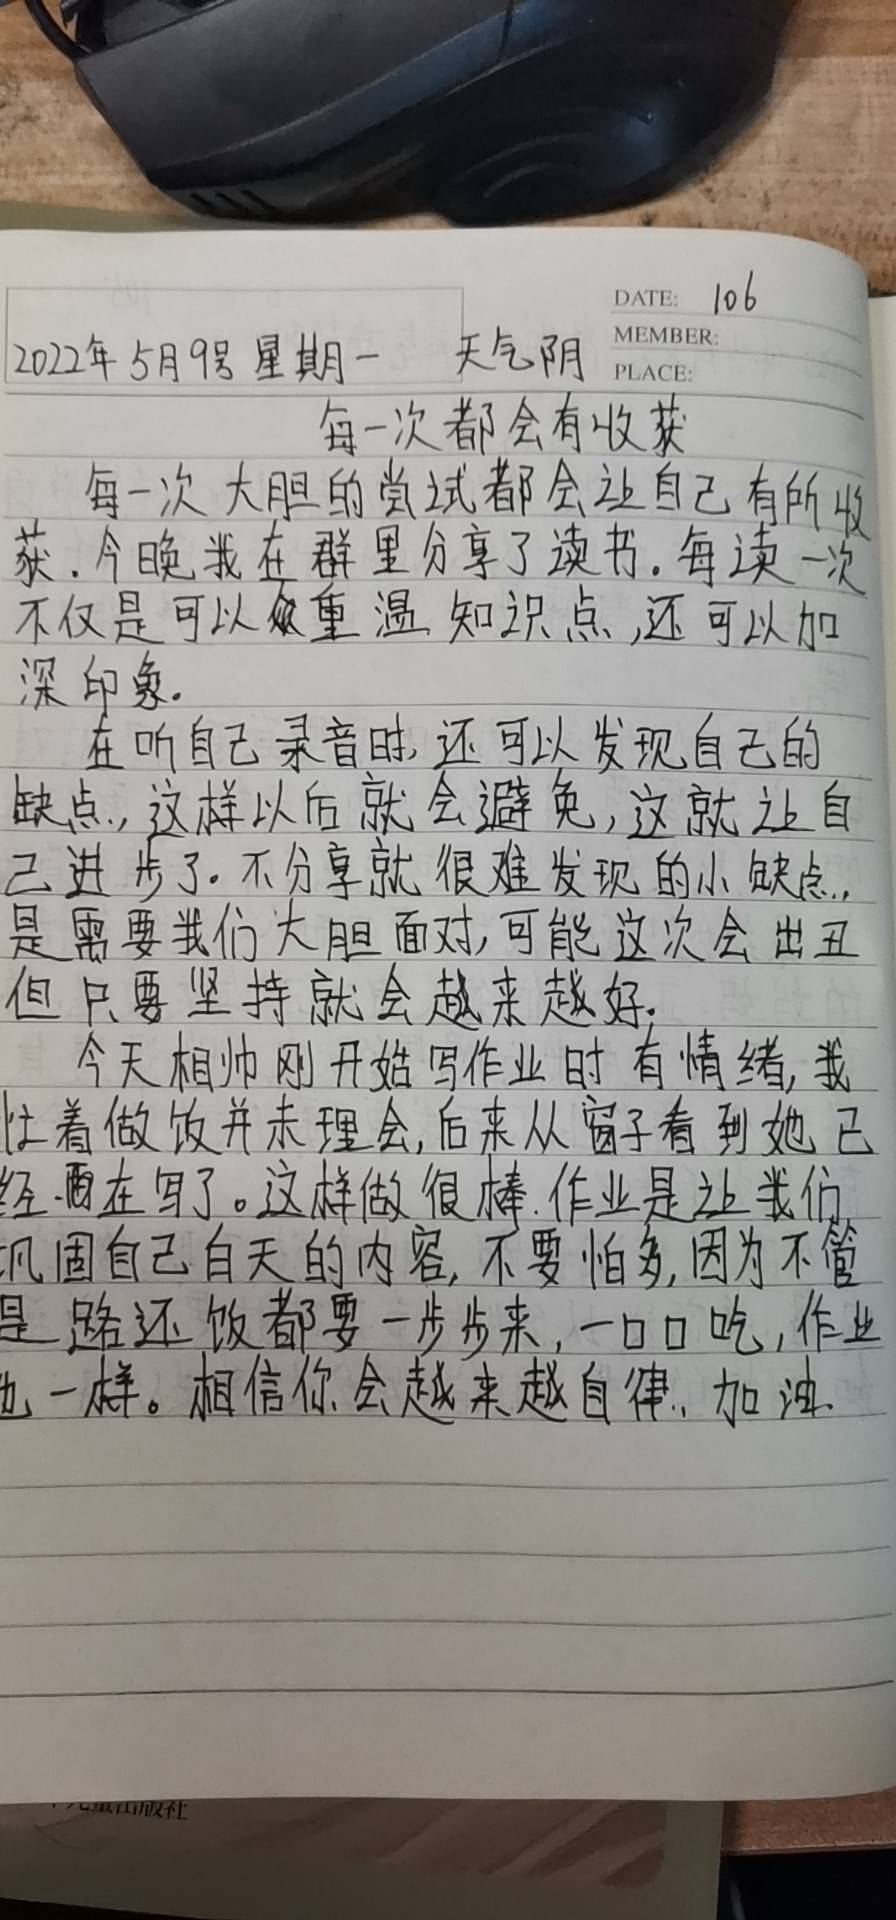 DATE: 106
MEMBER:
2022年5月9号星期一 天气阴
PLACE:
每一次都会有收获
每一次大胆的尝试都会让自己有所收
获.今晚我在群里分享了读书.每读一次
不仅是可以重温知识点,还可以加
深印象.
在听自己录音时,还可以发现自己的
缺点,这样以后就会避免,这就让自
己进步了。不分享就很难发现的小缺点,
是需要我们大胆面对,可能这次会出丑
但只要坚持就会越来越好.
今天相帅刚开始写作业时有情绪,我
忙着做饭并未理会,后来从窗子看到她已
经在写了。这样做很棒.作业是让我们
巩固自己白天的内容,不要怕多,因为不管
是路还饭都要一步步来,一口口吃,作业
也一样。相信你会越来越自律.加油.
儿童出版社